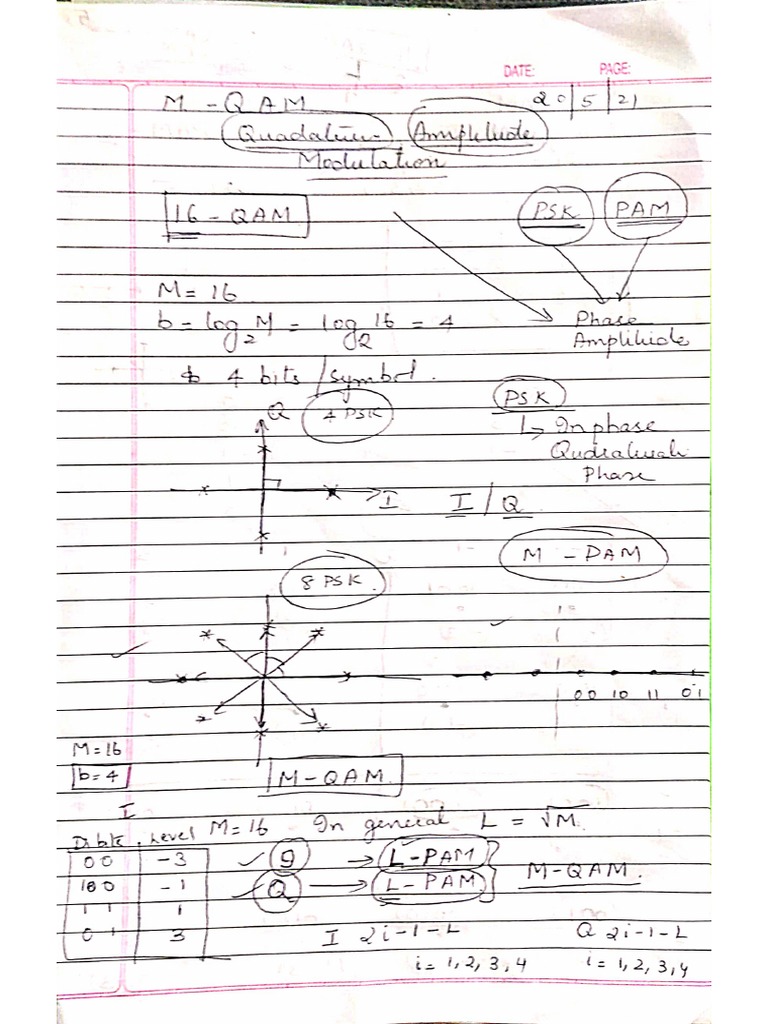 DATE: PAGE:
M - QAM 20 | 5 | 21
Quadature Amplitude
Modulation
16 - QAM PSK PAM
M = 16
b = log2 M = log2 16 = 4 Phase
Amplitude
4 bits / symbol.
Q 4 PSK PSK
↳ In phase
Quadrature
Phase
I I / Q
M - PAM
8 PSK
00 10 11 01
M = 16
b = 4 M - QAM
I
Dibit Level M = 16 In general L = √M
00 -3 I → L - PAM
10 0 -1 Q → L - PAM M - QAM.
11 1
01 3 I 2i-1-L Q 2i-1-L
i = 1, 2, 3, 4 i = 1, 2, 3, 4